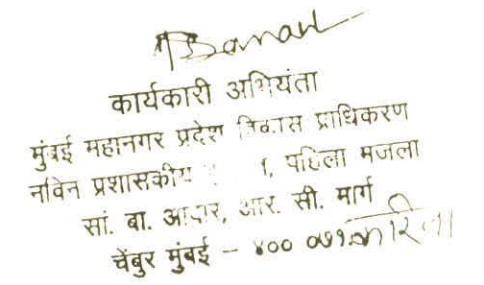 कार्यकारी अभियंता
मुंबई महानगर प्रदेश विकास प्राधिकरण
नविन प्रशासकीय पहिला मजला
सां. बा. आवार, आर. सी. मार्ग
चेंबुर मुंबई - ४०० ०७१. करिता